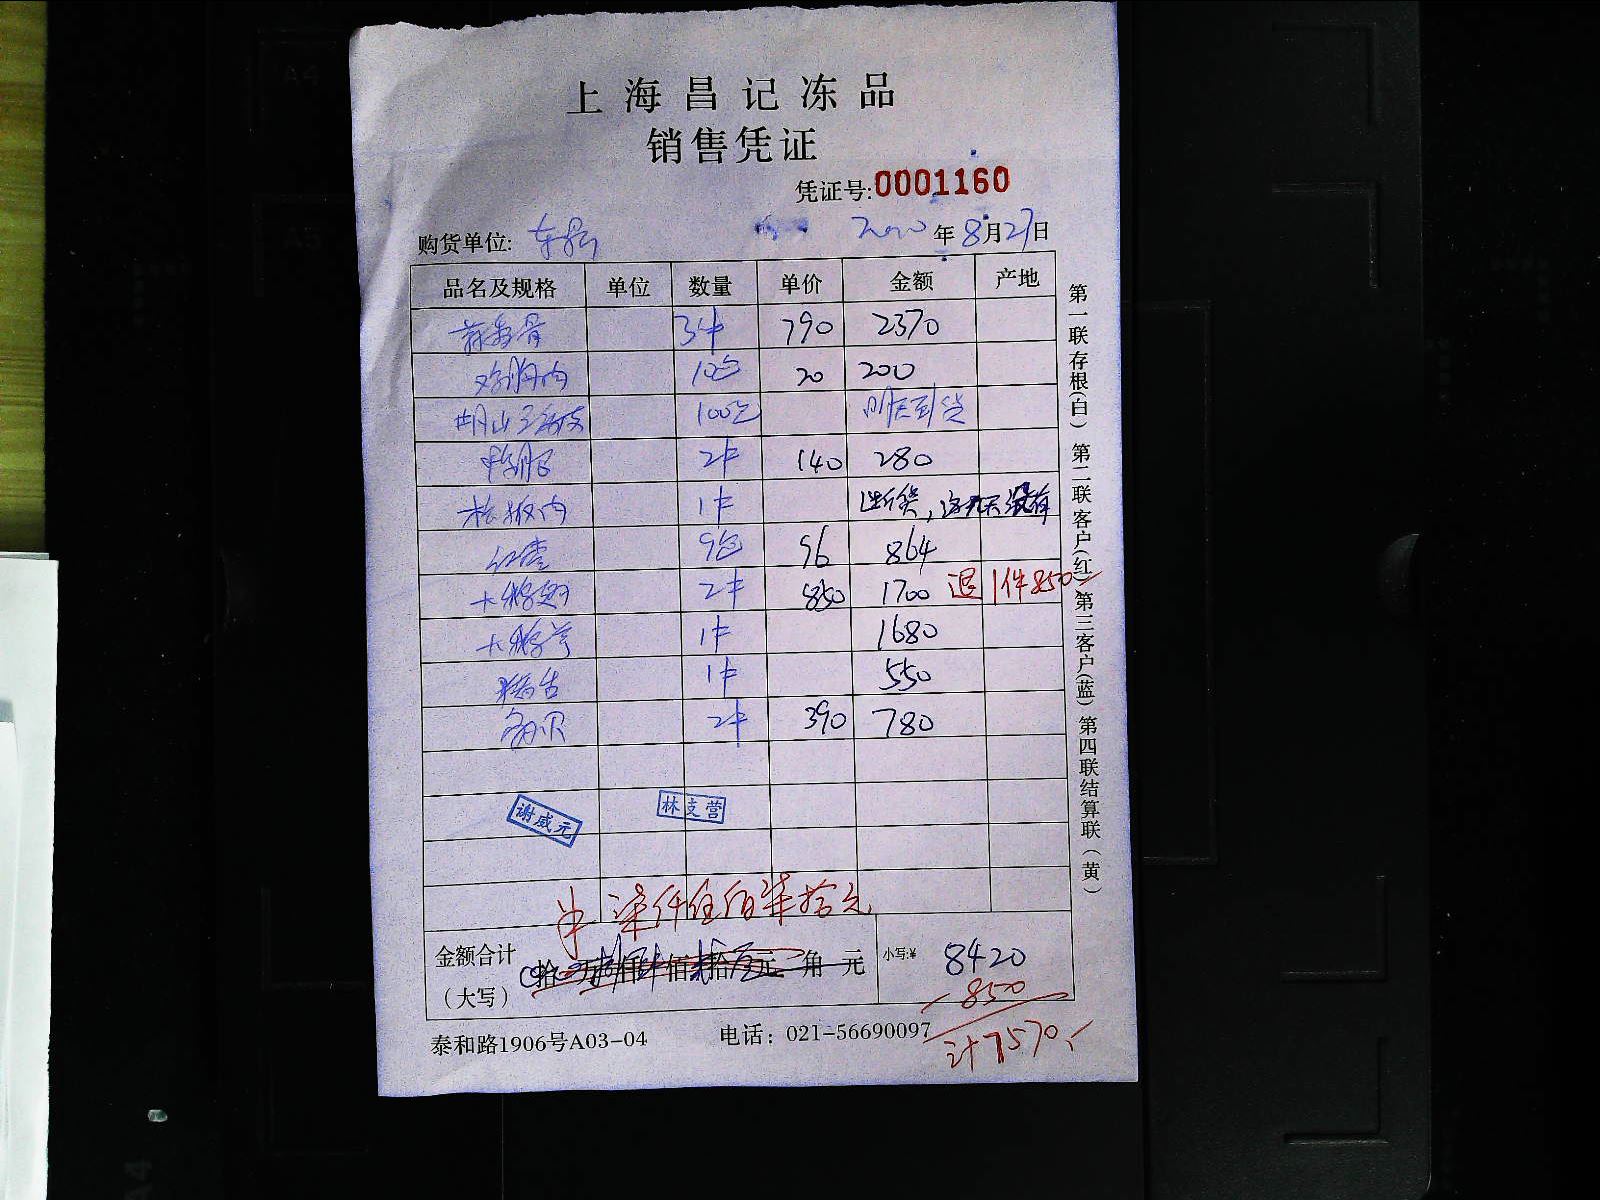 上海昌记冻品
销售凭证
凭证号:0001160
购货单位: 年8月27日
品名及规格 单位 数量 单价 金额 产地
3件 790 2370
鸡胸肉 10包 20 200
100包 明天到货
2件 140 280
松板肉 1件 断货,这几天没有
9包 96 864
大鹅翅 2件 850 1700 退1件850
大鹅 1件 1680
1件 550
2件 390 780
谢威元 林支营
柒仟伍佰柒拾元
金额合计(大写) 拾 万 仟 佰 拾 元 角 元 小写:¥ 8420
-850
计7570
泰和路1906号A03-04 电话: 021-56690097
第一联存根(白) 第二联客户(红) 第三客户(蓝) 第四联结算联(黄)